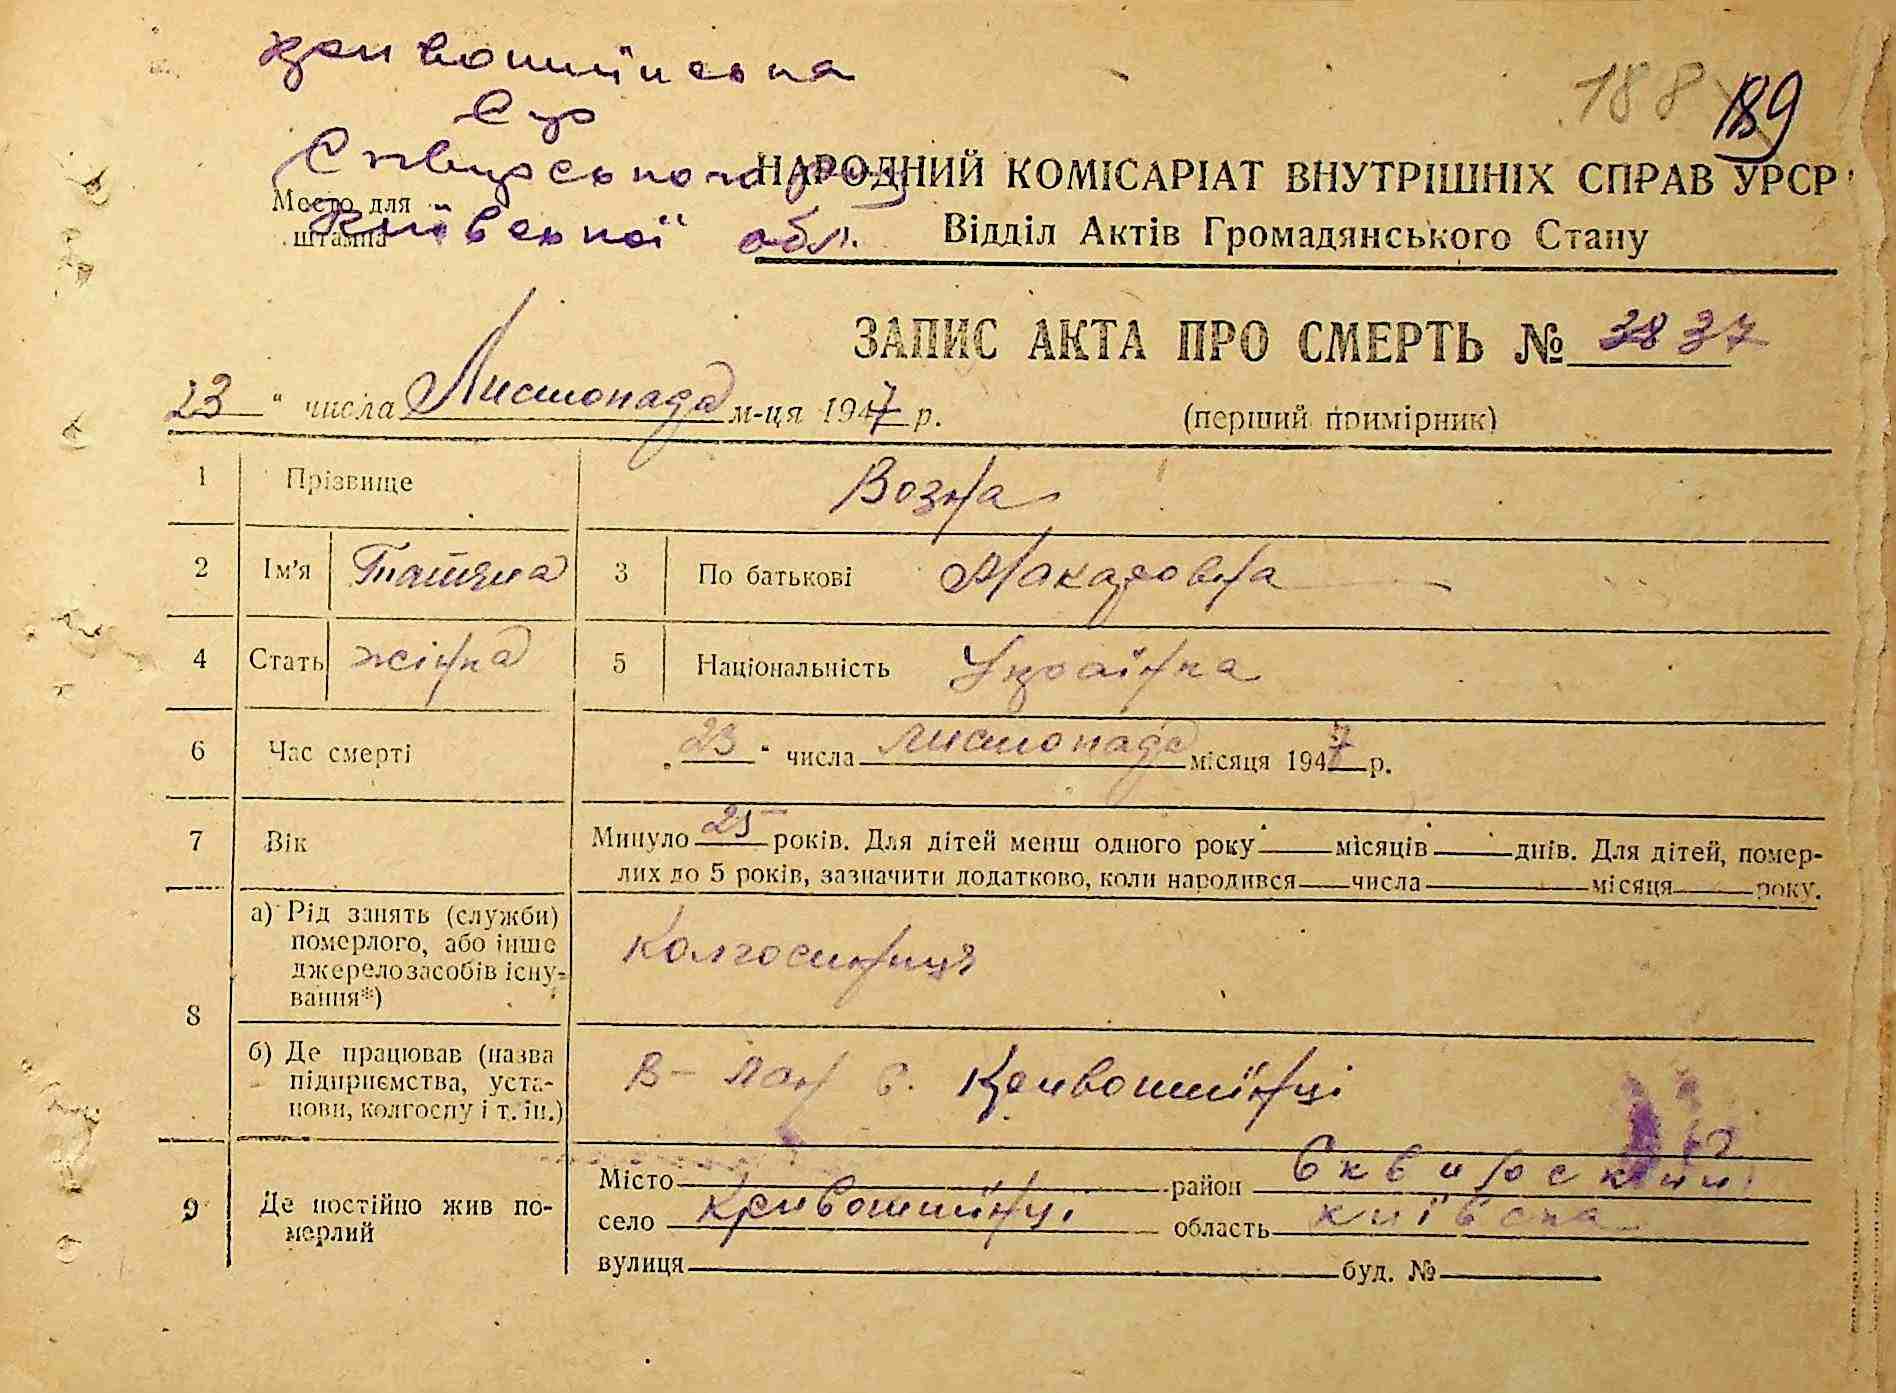 Кривошиїнська
С/р
Сквирського р-ну
Київської обл.
Место для
штампа
188 189
НАРОДНИЙ КОМІСАРІАТ ВНУТРІШНІХ СПРАВ УРСР
Відділ Актів Громадянського Стану
ЗАПИС АКТА ПРО СМЕРТЬ № 3837
23 " числа Листопада м-ця 1947 р. (перший примірник)
1 Прізвище Возна
2 Ім'я Татяна 3 По батькові Макаровна
4 Стать жінка 5 Національність Українка
6 Час смерті „ 23 " числа листопада місяця 1947 р.
7 Вік Минуло 25 років. Для дітей менш одного року місяців днів. Для дітей, помер-
лих до 5 років, зазначити додатково, коли народився числа місяця року.
8 а) Рід занять (служби)
померлого, або інше
джерелозасобів існу-
вання*) Колгоспниця
б) Де працював (назва
підприємства, уста-
нови, колгоспу і т. ін.) В-лан с. Кривошиїнці
9 Де постійно жив по-
мерлий
Місто район Сквирский
село Кривошиїнці область київска
вулиця буд. №